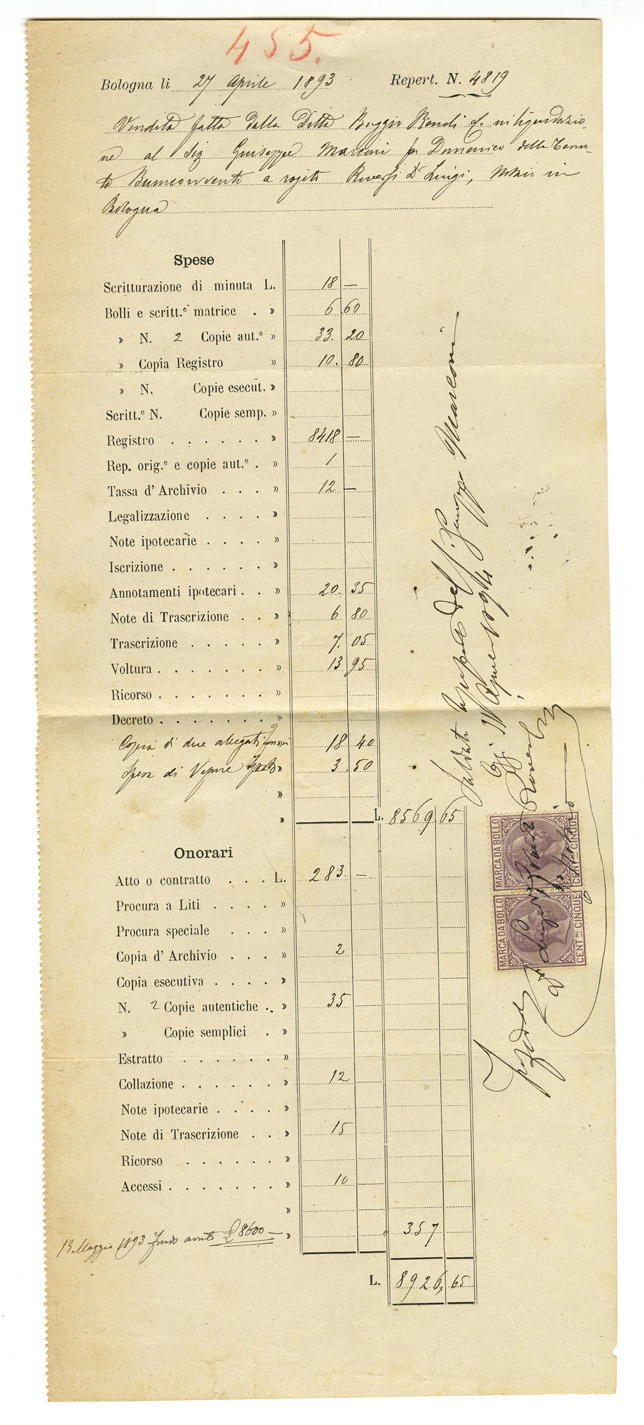 455.
Bologna li 27 Aprile 1893 Repert. N. 4819
Vendita fatta dalla Ditta Beggio Bendi in liquidazio-
ne al Sig Giuseppe Marconi fu Domenico della Tenu-
ta Buonconvento a rogito D Luigi, Notaio in
Bologna
Spese
Scritturazione di minuta L. 18 —
Bolli e scritt.e matrice . » 6 60
» N. 2 Copie aut.e » 33. 20
» Copia Registro » 10. 80
» N. Copie esecut. »
Scritt.e N. Copie semp. »
Registro . . . . . . » 8418 —
Rep. orig.e e copie aut.e . » 1
Tassa d' Archivio . . . » 12 —
Legalizzazione . . . . »
Note ipotecarie . . . . »
Iscrizione . . . . . . »
Annotamenti ipotecari . . » 20. 35
Note di Trascrizione . . » 6 80
Trascrizione . . . . . » 7. 05
Voltura . . . . . . » 13 95
Ricorso . . . . . . »
Decreto . . . . . . . »
Copia di due allegati 18 40
Spese di » 3. 50
»
» L. 8569 65
Onorari
Atto o contratto . . . L. 283 —
Procura a Liti . . . . »
Procura speciale . . . »
Copia d' Archivio . . . » 2
Copia esecutiva . . . . »
N. 2 Copie autentiche . . » 35
» Copie semplici . »
Estratto . . . . . . »
Collazione . . . . . » 12
Note ipotecarie . . . . »
Note di Trascrizione . . » 15
Ricorso . . . . . . »
Accessi . . . . . . . » 10
»
13 Maggio 1893 £ 8600 — » » 357
L. 8926, 65
Saldato Giuseppe Marconi
MARCA DA BOLLO
CENT.MI CINQUE
MARCA DA BOLLO
CENT.MI CINQUE
D Luigi
Notaio